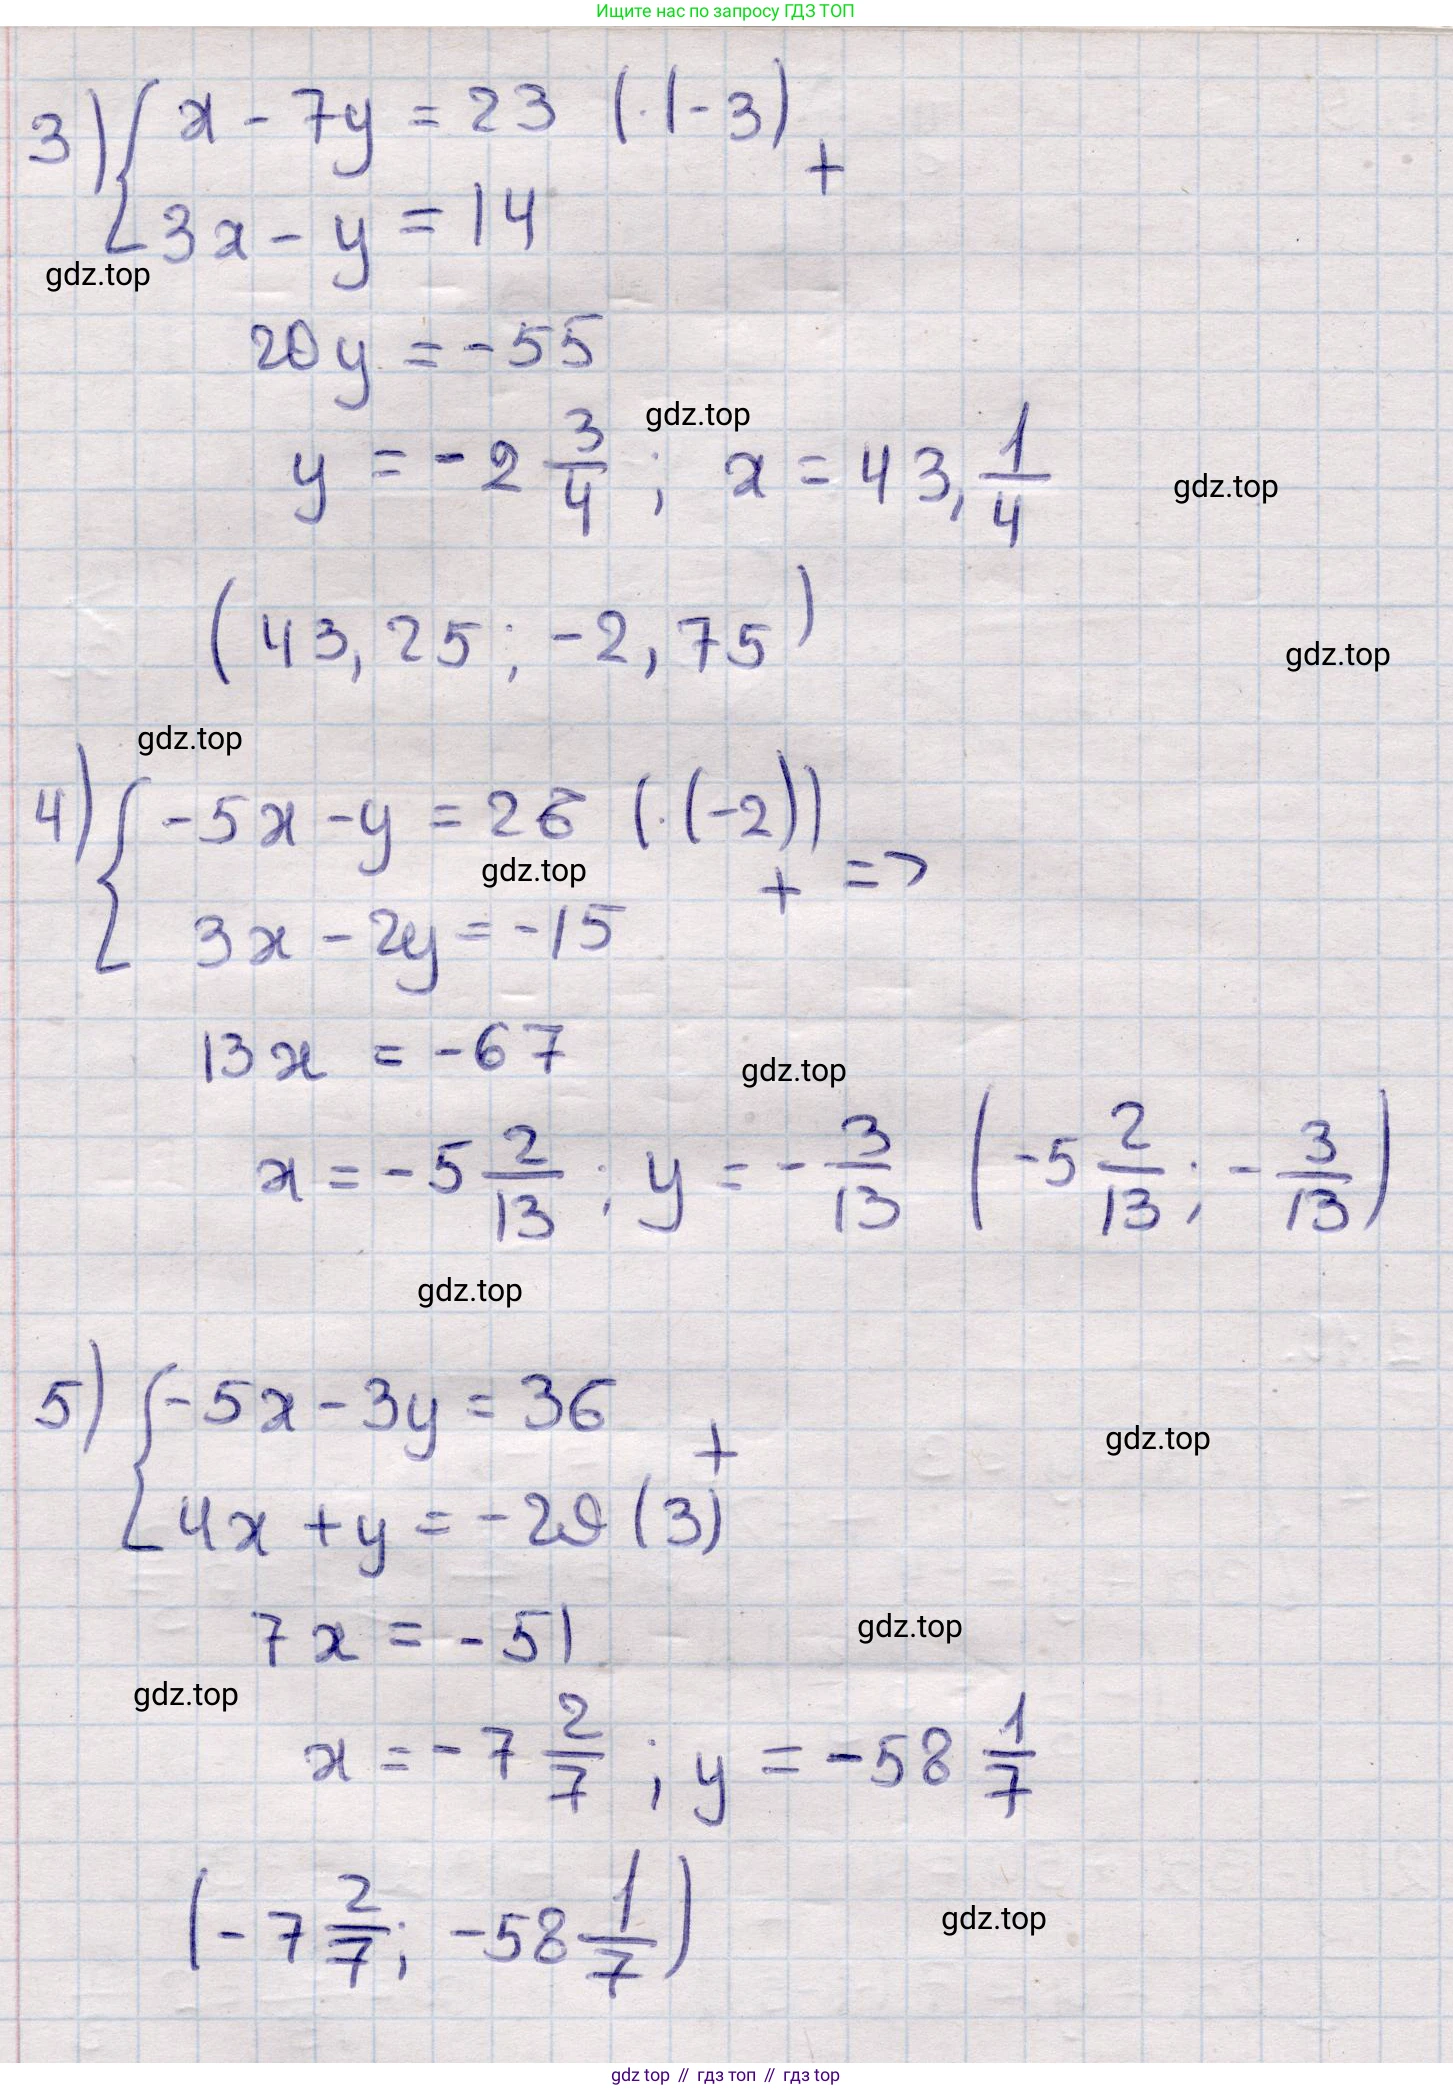 Ищите нас по запросу ГДЗ ТОП
3) { x - 7y = 23 (·(-3)
+
3x - y = 14
gdz.top
20y = -55
gdz.top
y = -2 3/4 ; x = 43, 1/4
gdz.top
(43,25; -2,75)
gdz.top
gdz.top
4) { -5x - y = 26 (·(-2))
gdz.top
+ =>
3x - 2y = -15
13x = -67
gdz.top
x = -5 2/13 ; y = - 3/13 (-5 2/13; - 3/13)
gdz.top
5) { -5x - 3y = 36
+
gdz.top
4x + y = -29 (3)
7x = -51
gdz.top
gdz.top
x = -7 2/7 ; y = -58 1/7
(-7 2/7; -58 1/7)
gdz.top
gdz top // гдз топ // гдз top